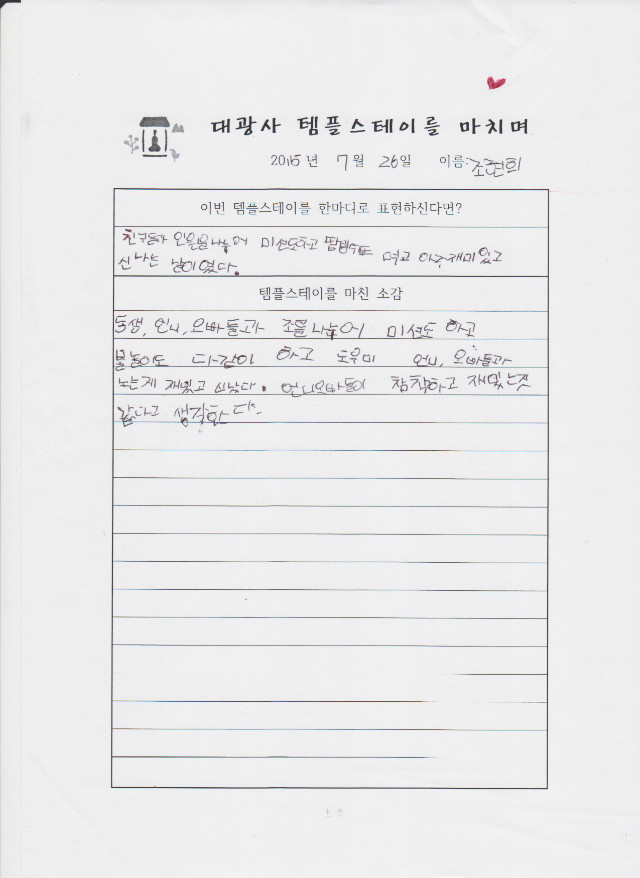 대광사 템플스테이를 마치며
2015년 7월 26일 이름: 조현희
이번 템플스테이를 한마디로 표현하신다면?
친구들과 인원을 나누어 미션도하고 팥빙수도 먹고 아주재미있고
신나는 날이였다.
템플스테이를 마친 소감
동생, 언니, 오빠들과 조를 나누어 미션도 하고
물놀이도 다같이 하고 도우미 언니, 오빠들과
노는게 재밌고 신났다. 언니오빠들이 참 착하고 재밌는것
같다고 생각한다.